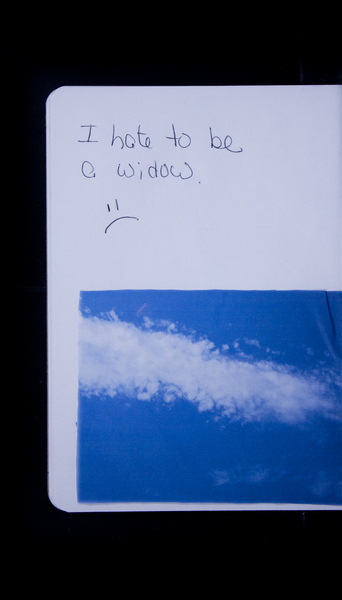 I hate to be
a widow.